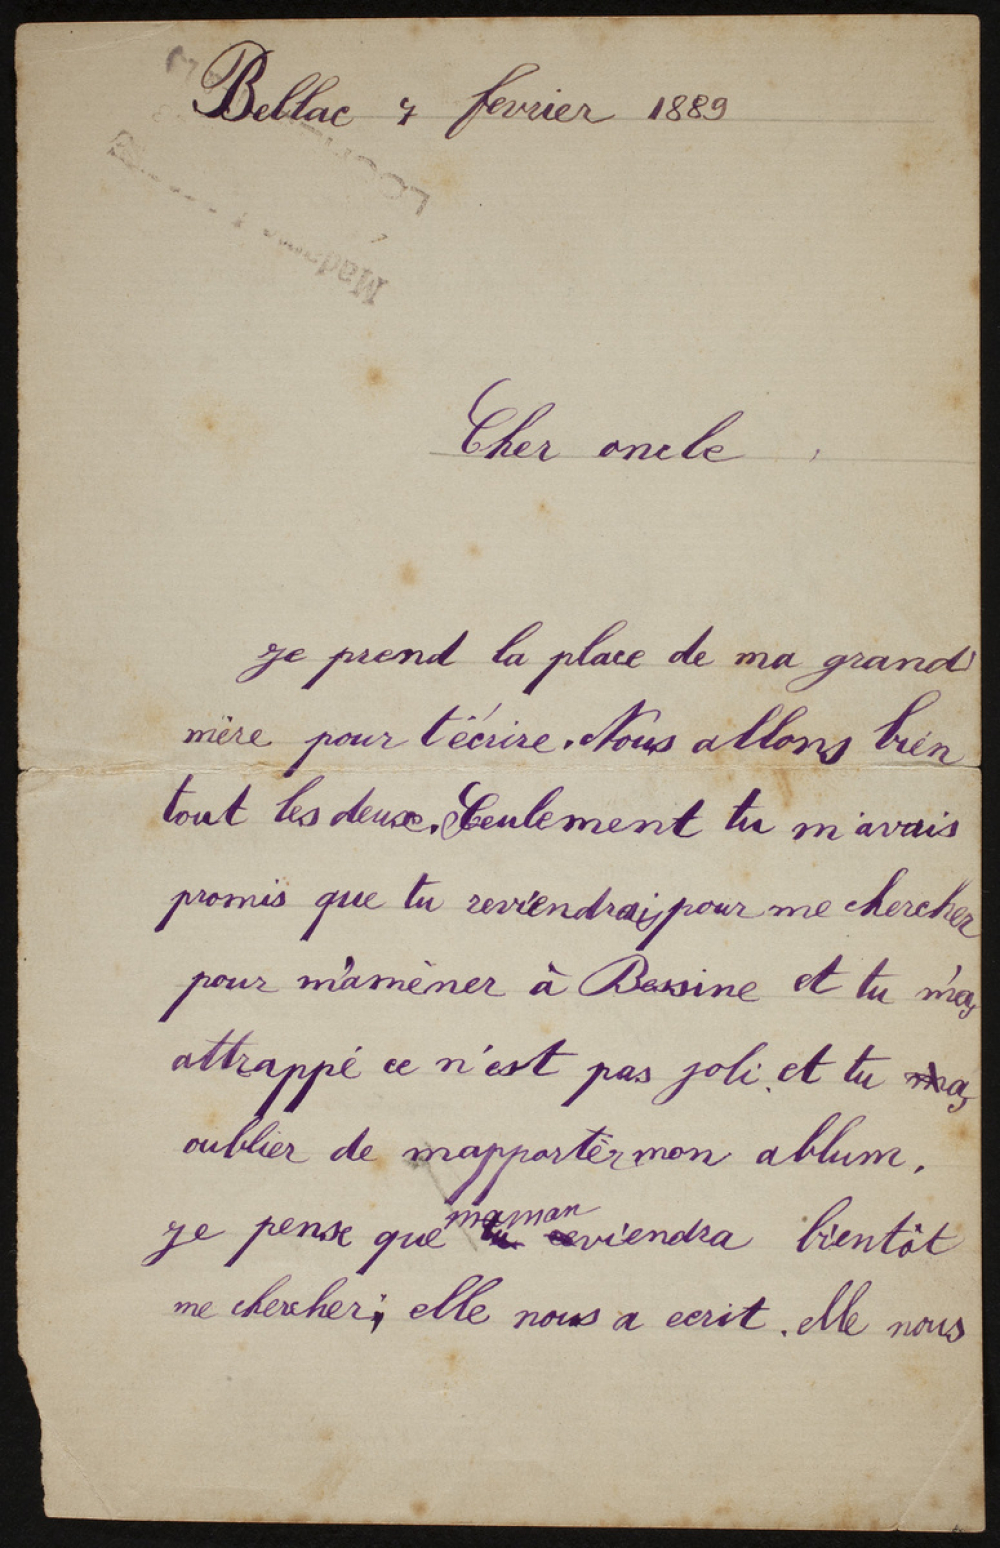 Bellac 7 fevrier 1889
Madame
Cher oncle,
Je prend la place de ma grand'
mère pour t'écrire. Nous allons bien
tout les deux. Seulement tu m'avais
promis que tu reviendrais pour me chercher
pour m'amèner à Bessine et tu m'as
attrappé ce n'est pas joli. et tu as
oublier de mapportèr mon alblum.
Je pense que maman reviendra bientôt
me chercher; elle nous a ecrit. elle nous